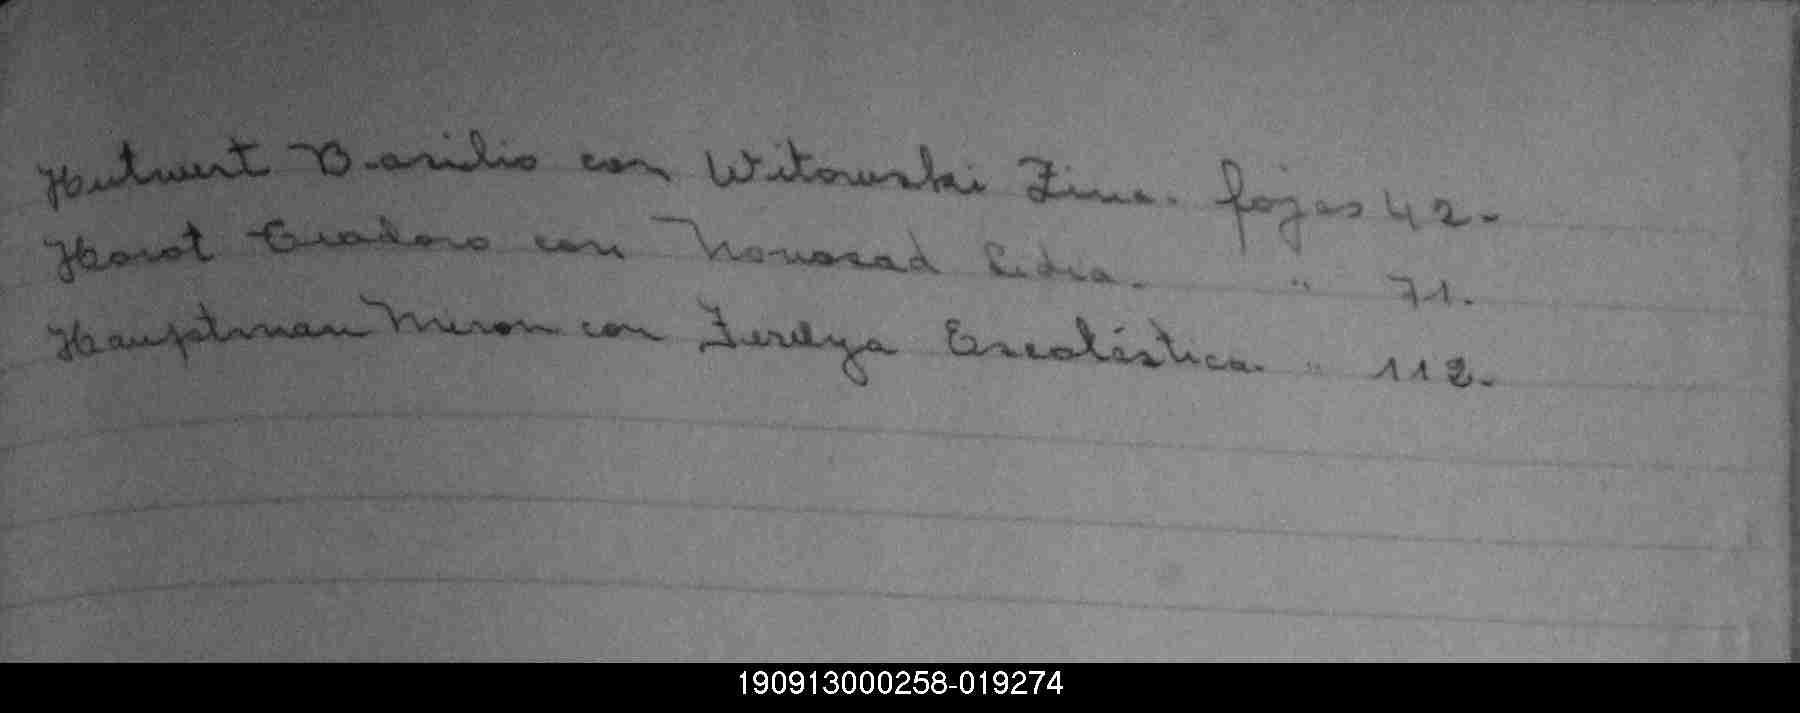 Hutwert Basilio con Witowski Zina. fojas 42-
Horot con Nowosad Lidia. " 71.
Hauptman Miron con Escolástica. " 112.
190913000258-019274